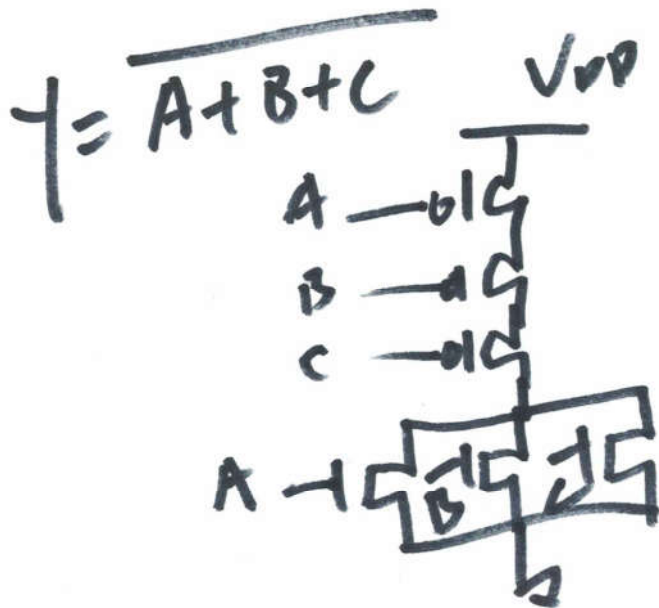 Y = \overline{A+B+C}
VDD
A
B
C
A
B
C